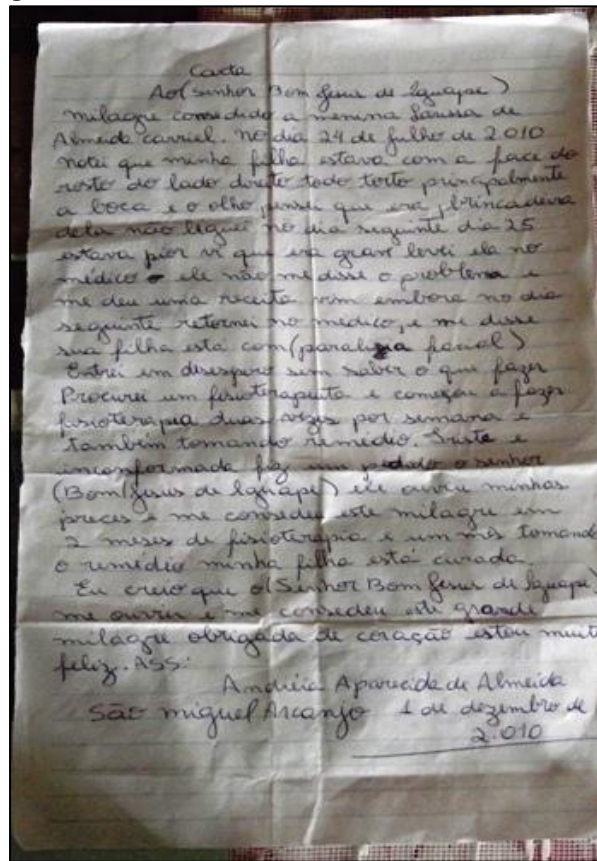 Carta
Ao (Senhor Bom Jesus de Iguape)
milagre consedido a menina Larissa de
Almeida carriel. no dia 24 de julho de 2.010
notei que minha filha estava com a face do
rosto do lado direito todo torto principalmente
a boca e o olho pensei que era brincadeira
dela não liguei no dia seguinte dia 25
estava pior vi que era grave levei ela no
médico e ele não me disse o problema e
me deu uma receita vim embora no dia
seguinte retornei no medico, e me disse
sua filha está com (paralizia facial)
Entrei em desespero sem saber o que fazer
Procurei um fisioterapeuta e começou a fazer
fisioterapia duas vezes por semana e
também tomando remédio. Triste e
inconformada fiz um pedido o senhor
(Bom Jesus de Iguape) ele ouviu minhas
preces e me consedeu este milagre em
2 meses de fisioterapia e um mês tomando
o remédio minha filha está curada.
Eu creio que o (Senhor Bom Jesus de Iguape)
me ouviu e me consedeu este grande
milagre obrigada de coração estou muito
feliz. ASS:
Andréia Aparecida de Almeida
São miguel Arcanjo 1 de dezembro de
2.010